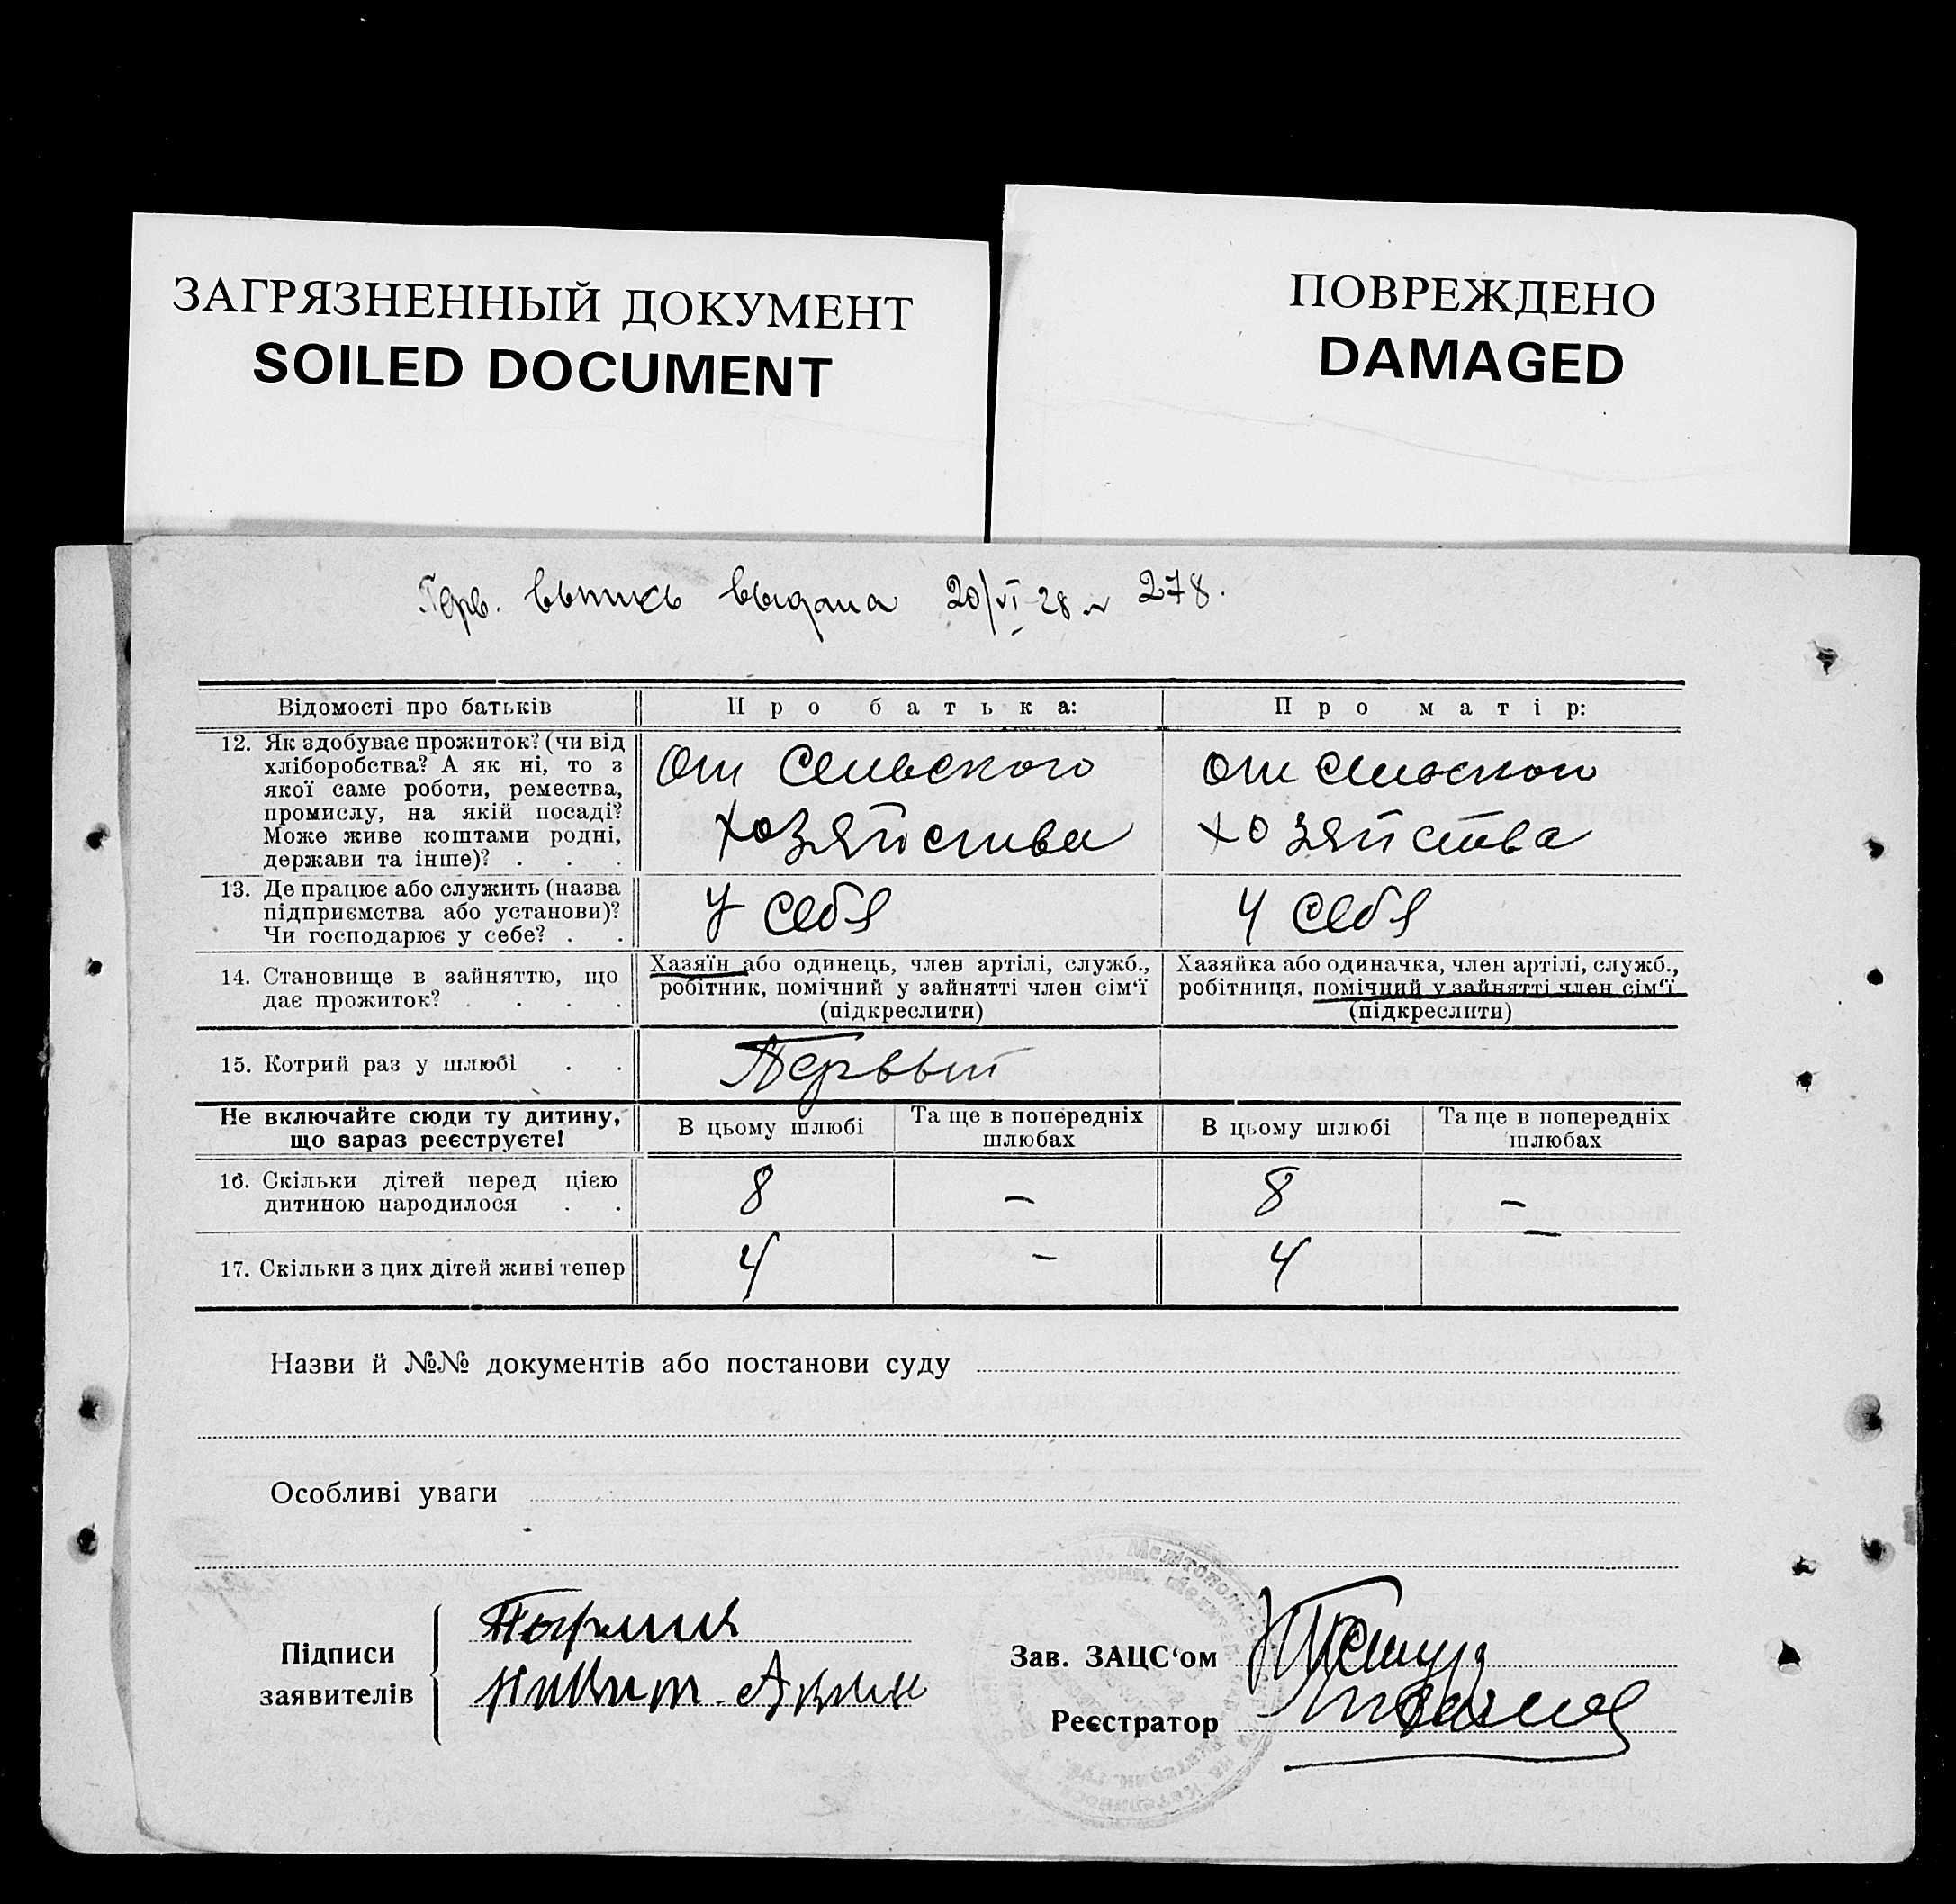 ЗАГРЯЗНЕННЫЙ ДОКУМЕНТ
SOILED DOCUMENT
ПОВРЕЖДЕНО
DAMAGED
Перв. выпись выдана 20/VI 28 № 278.
Відомості про батьків
Про батька:
Про матір:
12. Як здобуває прожиток? (чи від
хліборобства? А як ні, то з
якої саме роботи, ремества,
промислу, на якій посаді?
Може живе коштами родні,
держави та інше)? . . .
От сельского
хозяйства
от сельского
хозяйства
13. Де працює або служить (назва
підприємства або установи)?
Чи господарює у себе? . .
У себя
У себя
14. Становище в зайняттю, що
дає прожиток? . . . .
Хазяїн або одинець, член артілі, служб.,
робітник, помічний у зайнятті член сім‘ї
(підкреслити)
Хазяйка або одиначка, член артілі, служб.,
робітниця, помічний у зайнятті член сім‘ї
(підкреслити)
15. Котрий раз у шлюбі . .
Первый
Не включайте сюди ту дитину,
що зараз реєструєте!
В цьому шлюбі
Та ще в попередніх
шлюбах
В цьому шлюбі
Та ще в попередніх
шлюбах
16. Скільки дітей перед цією
дитиною народилося . .
8
–
8
–
17. Скільки з цих дітей живі тепер
4
–
4
–
Назви й №№ документів або постанови суду
Особливі уваги
Підписи
заявителів
Зав. ЗАЦС‘ом
Реєстратор